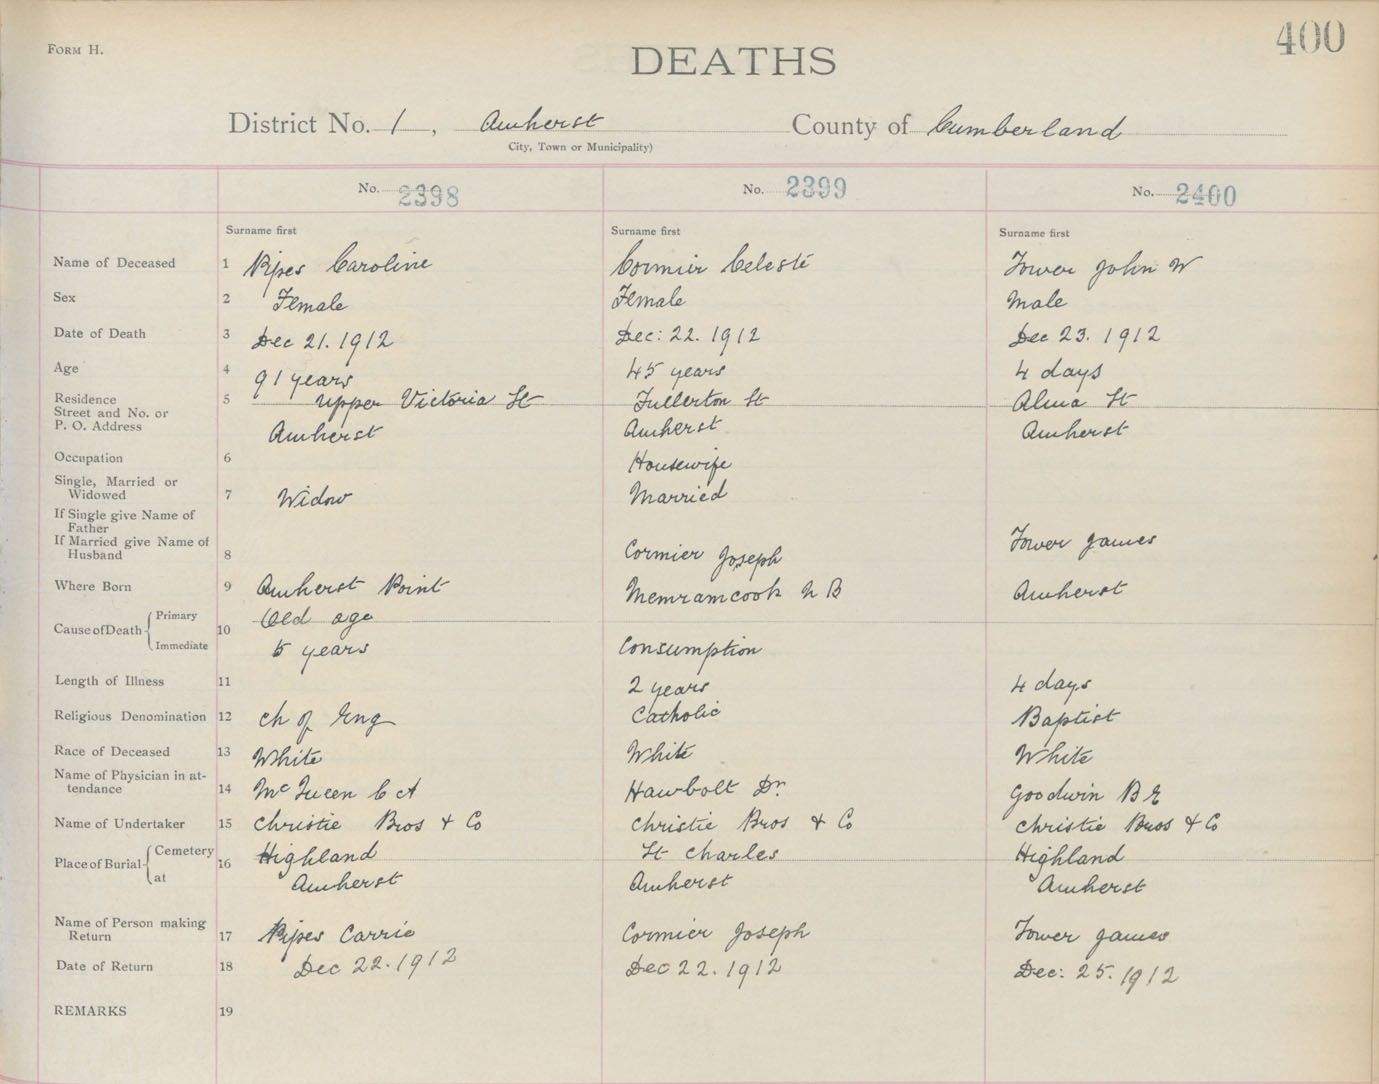 FORM H.
400
DEATHS
District No. 1, Amherst County of Cumberland
City, Town or Municipality)
No. 2398 No. 2399 No. 2400
Surname first Surname first Surname first
Name of Deceased 1 Pipes Caroline Cormier Celeste Tower John W
Sex 2 Female Female Male
Date of Death 3 Dec 21. 1912 Dec: 22. 1912 Dec 23. 1912
Age 4 91 years 45 years 4 days
Residence 5 Upper Victoria St Fullerton St Alma St
Street and No. or
P. O. Address Amherst Amherst Amherst
Occupation 6 Housewife
Single, Married or
Widowed 7 Widow Married
If Single give Name of
Father
If Married give Name of Tower James
Husband 8 Cormier Joseph
Where Born 9 Amherst Point Memramcook N B Amherst
Primary Old age
Cause of Death 10
Immediate 5 years Consumption
Length of Illness 11 2 years 4 days
Religious Denomination 12 Ch of Eng Catholic Baptist
Race of Deceased 13 White White White
Name of Physician in at-
tendance 14 McQueen C A Hawbolt Dr. Goodwin B E
Name of Undertaker 15 Christie Bros & Co Christie Bros & Co Christie Bros & Co
Cemetery Highland St Charles Highland
Place of Burial 16
at Amherst Amherst Amherst
Name of Person making
Return 17 Pipes Carrie Cormier Joseph Tower James
Date of Return 18 Dec 22. 1912 Dec 22. 1912 Dec: 25. 1912
REMARKS 19